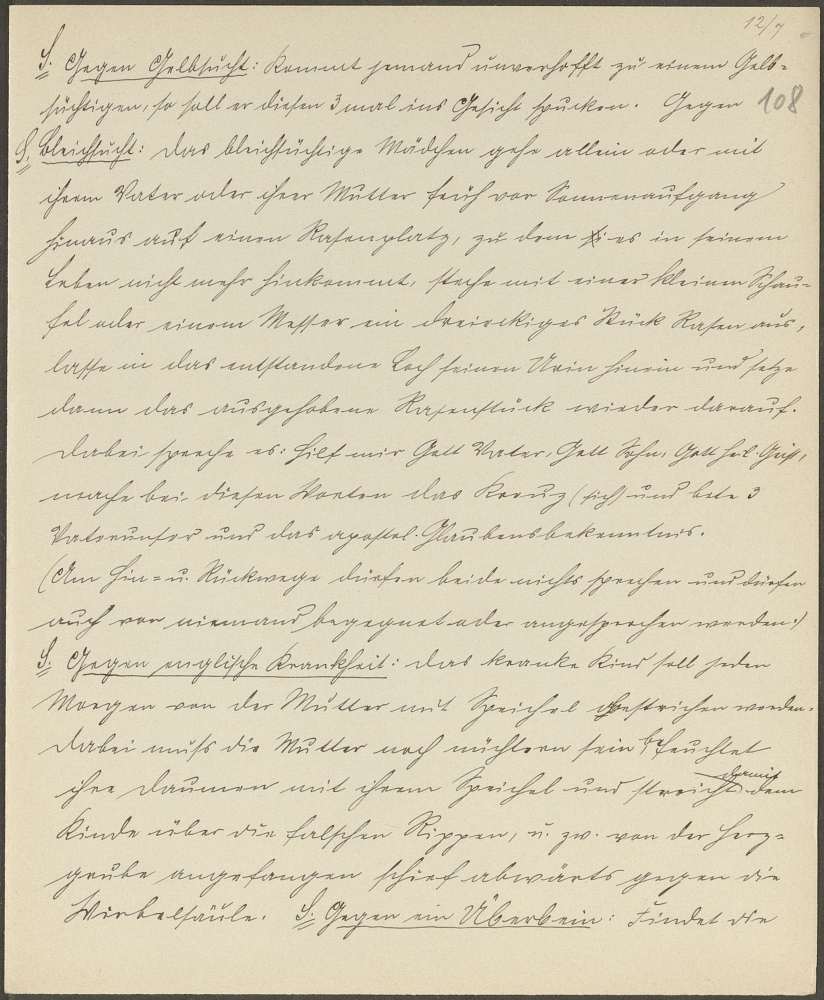 12/7
108
S. Gegen Gelbsucht: Kommt jemand unverhofft zu einem Gelb-
süchtigen, so soll er diesen 3 mal ins Gesicht spucken. Gegen
S. Bleichsucht: Das bleichsüchtige Mädchen gehe allein oder mit
ihrem Vater oder ihrer Mutter früh vor Sonnenaufgang
hinaus auf einen Rasenplatz, zu dem es in seinem
Leben nicht mehr hinkommt, steche mit einer kleinen Schau-
fel oder einem Messer ein dreieckiges Stück Rasen aus,
lasse in das entstandene Loch seinen Urin hinein und setze
dann das ausgehobene Rasenstück wieder darauf.
Dabei spreche es: Hilf mir Gott Vater, Gott Sohn, Gott heil. Geist,
mache bei diesen Worten das Kreuz (sich) und bete 3
Vaterunser und das apostol. Glaubensbekenntnis.
(Am Hin- u. Rückwege dürfen beide nichts sprechen und dürfen
auch von niemand begegnet oder angesprochen werden.)
S. Gegen englische Krankheit: Das kranke Kind soll jeden
Morgen von der Mutter mit Speichel bestrichen werden.
Dabei muß die Mutter noch nüchtern sein, befeuchtet
ihre Daumen mit ihrem Speichel und streicht damit dem
Kinde über die falschen Rippen, u. zw. von der Herz-
grube angefangen schief abwärts gegen die
Wirbelsäule. S. Gegen ein Überbein: Findet die